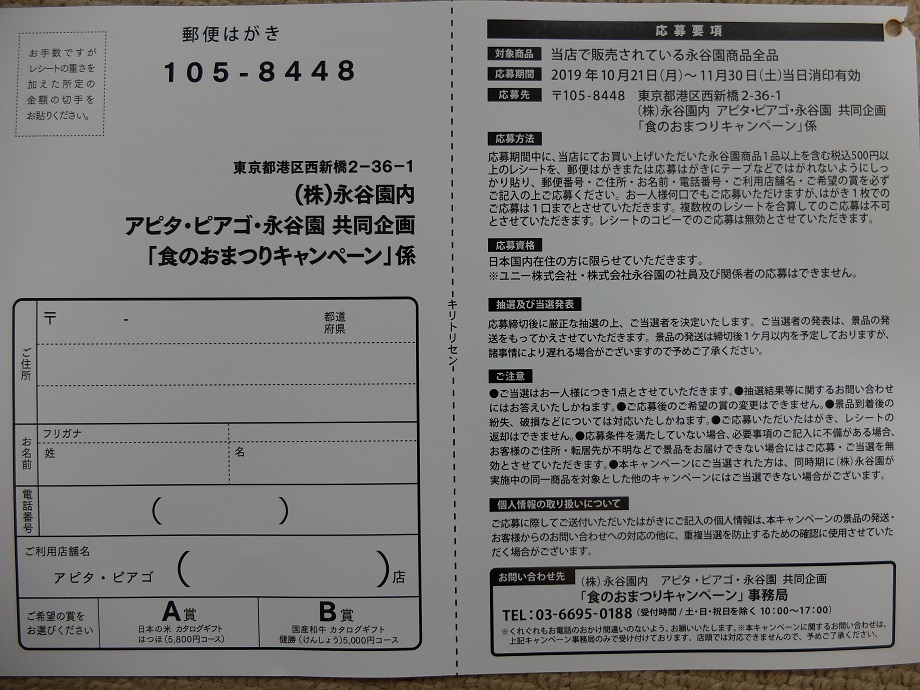 お手数ですが
レシートの重さを
加えた所定の
金額の切手を
お貼りください。
郵便はがき
105-8448
東京都港区西新橋2-36-1
(株)永谷園内
アピタ・ピアゴ・永谷園 共同企画
「食のおまつりキャンペーン」係
ご住所
〒 -
都道
府県
お名前
フリガナ
姓
名
電話番号
( )
ご利用店舗名
アピタ・ピアゴ ( )店
ご希望の賞を
お選びください
A賞
日本の米 カタログギフト
はつほ(5,800円コース)
B賞
国産和牛 カタログギフト
健勝(けんしょう)5,000円コース)
キリトリセン
応募要項
対象商品 当店で販売されている永谷園商品全品
応募期間 2019年10月21日(月)~11月30日(土)当日消印有効
応募先 〒105-8448 東京都港区西新橋2-36-1
(株)永谷園内 アピタ・ピアゴ・永谷園 共同企画
「食のおまつりキャンペーン」係
応募方法
応募期間中に、当店にてお買い上げいただいた永谷園商品1品以上を含む税込500円以
上のレシートを、郵便はがきまたは応募はがきにテープなどではがれないようにしっ
かり貼り、郵便番号・ご住所・お名前・電話番号・ご利用店舗名・ご希望の賞を必ず
ご記入の上ご応募ください。お一人様何口でもご応募いただけますが、はがき1枚での
ご応募は1口までとさせていただきます。複数枚のレシートを合算してのご応募は不可
とさせていただきます。レシートのコピーでのご応募は無効とさせていただきます。
応募資格
日本国内在住の方に限らせていただきます。
※ユニー株式会社・株式会社永谷園の社員及び関係者の応募はできません。
抽選及び当選発表
応募締切後に厳正な抽選の上、ご当選者を決定いたします。ご当選者の発表は、景品の発
送をもってかえさせていただきます。景品の発送は締切後1ケ月以内を予定しておりますが、
諸事情により遅れる場合がございますので予めご了承ください。
ご注意
●ご当選はお一人様につき1点とさせていただきます。●抽選結果等に関するお問い合わせ
にはお答えいたしかねます。●ご応募後のご希望の賞の変更はできません。●景品到着後の
紛失、破損などについては対応いたしかねます。●ご応募いただいたはがき、レシートの
返却はできません。●応募条件を満たしていない場合、必要事項のご記入に不備がある場合、
お客様のご住所・転居先が不明などで景品をお届けできない場合にはご応募・ご当選を無
効とさせていただきます。●本キャンペーンにご当選された方は、同時期に(株)永谷園が
実施中の同一商品を対象とした他のキャンペーンにはご当選できない場合がございます。
個人情報の取り扱いについて
ご応募に際してご送付いただいたはがきにご記入の個人情報は、本キャンペーンの景品の発送・
お客様からのお問い合わせへの対応の他に、重複当選を防止するための確認に使用させていた
だく場合がございます。
お問い合わせ先 (株)永谷園内 アピタ・ピアゴ・永谷園 共同企画
「食のおまつりキャンペーン」事務局
TEL:03-6695-0188(受付時間/土・日・祝日を除く10:00~17:00)
※くれぐれもお電話のおかけ間違いのないよう、お願いいたします。※本キャンペーンに関するお問い合わせは、
上記キャンペーン事務局のみで受け付けております。店頭では対応できませんので、予めご了承ください。